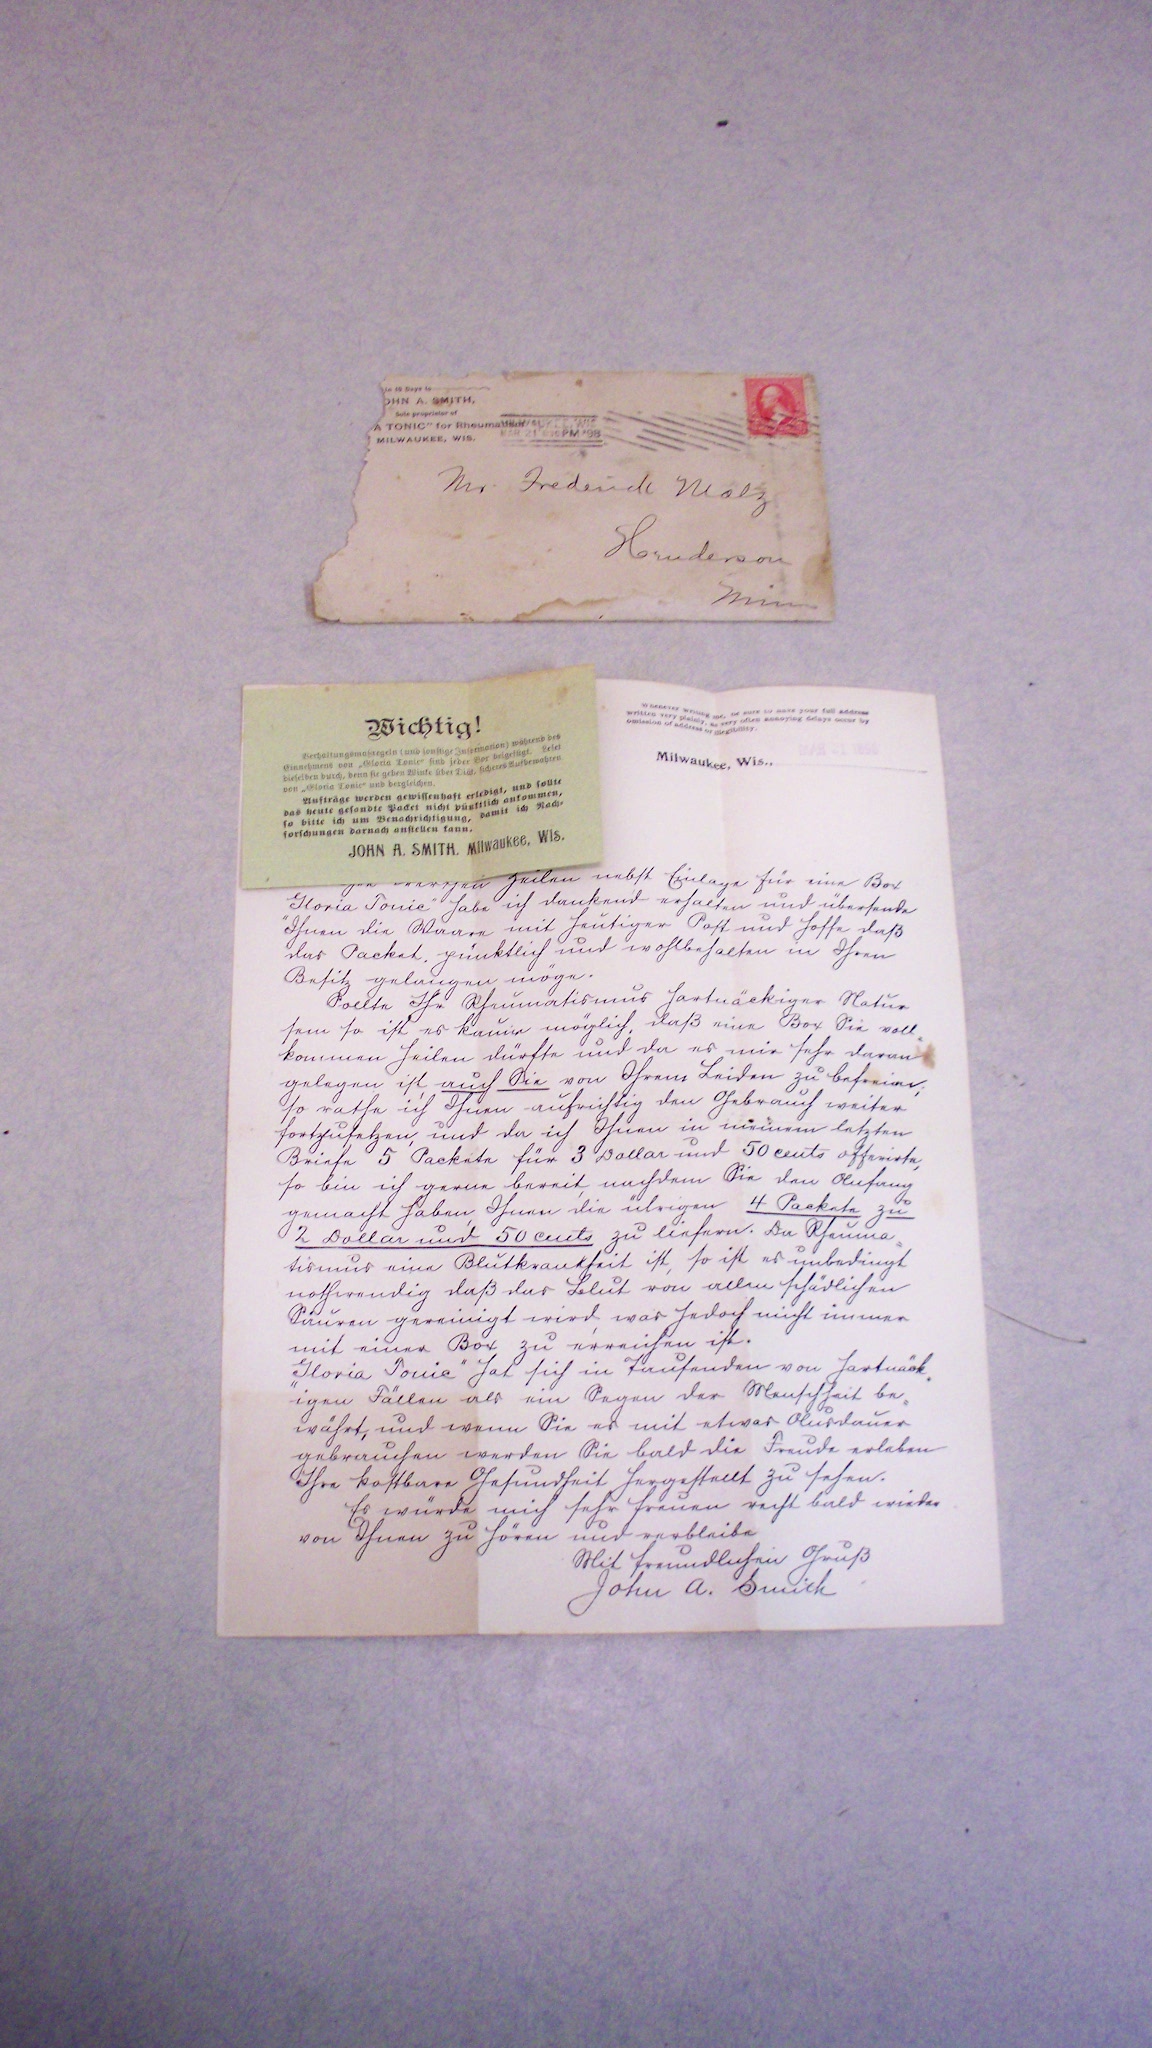 in 10 Days to
OHN A. SMITH,
Sole proprietor of
A TONIC" for Rheumatism
MILWAUKEE, WIS.
MILWAUKEE, WIS.
MAR 21 PM '98
Mr. Frederick Malz
Henderson
Minn
Wichtig!
Verhaltungsmaßregeln (und sonstige Information) während des
Einnehmens von „Gloria Tonic" sind jeder Box beigefügt. Leset
dieselben durch, denn sie geben Winke über Diät, sicheres Aufbewahren
von „Gloria Tonic" und dergleichen.
Aufträge werden gewissenhaft erledigt, und sollte
das heute gesandte Packet nicht pünktlich ankommen,
so bitte ich um Benachrichtigung, damit ich Nach-
forschungen darnach anstellen kann.
JOHN A. SMITH. Milwaukee, Wis.
Whenever writing me, be sure to have your full address
written very plainly, as very often annoying delays occur by
omission of address or illegibility.
Milwaukee, Wis.,
Zeilen nebst Einlage für eine Box
"Gloria Tonic" habe ich dankend erhalten und übersende
Ihnen die Waare mit heutiger Post und hoffe daß
das Packet, pünktlich und wohlbehalten in Ihren
Besitz gelangen möge.
Sollte Ihr Rheumatismus hartnäckiger Natur
sein so ist es kaum möglich, daß eine Box Sie voll-
kommen heilen dürfte und da es mir sehr daran
gelegen ist auch Sie von Ihrem Leiden zu befreien,
so rathe ich Ihnen aufrichtig den Gebrauch weiter
fortzusetzen, und da ich Ihnen in meinem letzten
Briefe 5 Packete für 3 Dollar und 50 cents offerirte,
so bin ich gerne bereit, nachdem Sie den Anfang
gemacht haben, Ihnen die übrigen 4 Packete zu
2 Dollar und 50 cents zu liefern. Da Rheuma-
tismus eine Blutkrankheit ist, so ist es unbedingt
nothwendig daß das Blut von allen schädlichen
Säuren gereinigt wird, was jedoch nicht immer
mit einer Box zu erreichen ist.
"Gloria Tonic" hat sich in Tausenden von hartnäck-
igen Fällen als ein Segen der Menschheit be-
währt, und wenn Sie es mit etwas Ausdauer
gebrauchen werden Sie bald die Freude erleben
Ihre kostbare Gesundheit hergestellt zu sehen.
Es würde mich sehr freuen recht bald wieder
von Ihnen zu hören und verbleibe
Mit freundlichen Gruß
John A. Smith